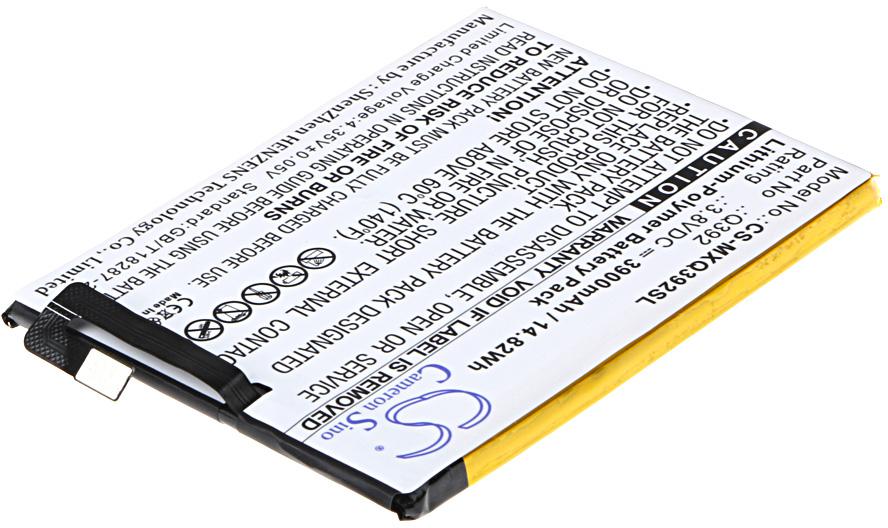 Model No.: CS-MXQ392SL
Part No.: Q392
Rating: 3.8VDC ⎓ 3900mAh / 14.82Wh
Lithium-Polymer Battery Pack
CAUTION
WARRANTY VOID IF LABEL IS REMOVED
•DO NOT ATTEMPT TO DISASSEMBLE, OPEN OR SERVICE
THE BATTERY PACK
•REPLACE ONLY WITH THE BATTERY PACK DESIGNATED
FOR THIS PRODUCT
•DO NOT CRUSH, PUNCTURE, SHORT EXTERNAL CONTACTS
OR DISPOSE OF IN FIRE OR WATER
•DO NOT STORE ABOVE 60C (140°F).
ATTENTION:
NEW BATTERY PACK MUST BE FULLY CHARGED BEFORE USE.
TO REDUCE RISK OF FIRE OR BURNS
READ INSTRUCTIONS IN OPERATING GUIDE BEFORE USING THE
Limited Charge Voltage:4.35V±0.05V Standard:GB/T18287-
Manufacture by: ShenZhen HENZENS Technology Co., Limited
CE
Made in
CS
Cameron Sino
®